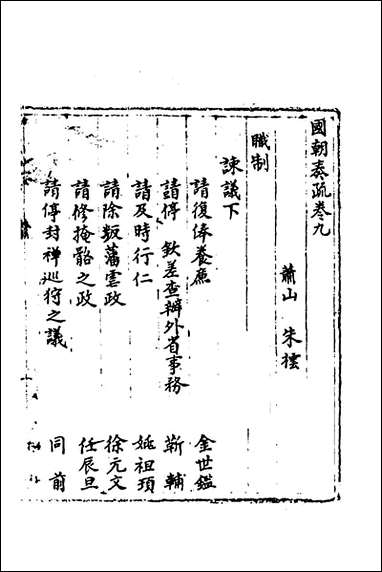 國朝奏疏卷九
蕭山 朱樰
職制
諫議下
請復俸養廉 金世鑑
請停 欽差查辦外省事務 靳輔
請及時行仁 姚祖頊
請除叛藩虐政 徐元文
請修掩骼之政 任辰旦
請停封禪巡狩之議 同前